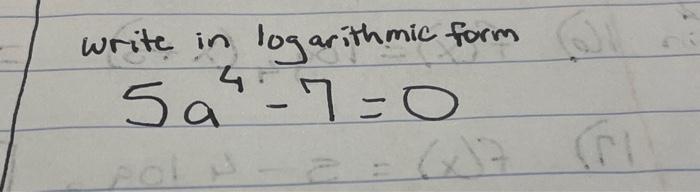 write in logarithmic form
5a⁴ - 7 = 0